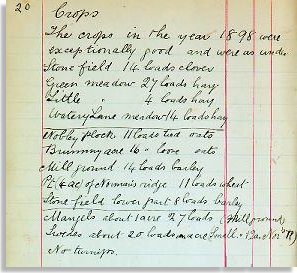 20
Crops
The crops in the year 1898 were
exceptionally good and were as under
Stone field 14 loads clover
Green meadow 27 loads hay
Little " 4 loads hay
Watery Lane meadow 14 loads hay
Nobby Flock 11 loads tied oats
Brummy acre 16 " loose oats
Mill ground 14 loads barley
Pt (4 ac) of Normans ridge 11 loads wheat
Stone field lower part 8 loads barley
Mangels about 1 acre 27 loads (Mill ground)
Swedes about 20 loads an acre Small
No turnips.